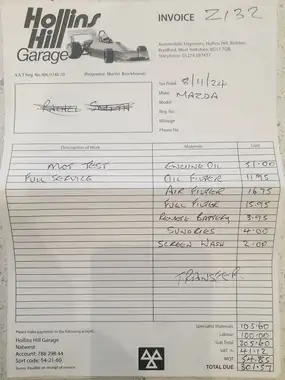 Hollins
Hill
Garage
INVOICE Z132
Automobile Engineers, Hollins Hill, Baildon,
Bradford, West Yorkshire, BD17 7QN
Telephone: 01274
V.A.T Reg. No.
Proprietor: Martin Brackbourn
Tax Point 8/11/24
Make MAZDA
Model
Reg. No.
Mileage
Phone No
Description of Work Materials Cost
MOT TEST ENGINE OIL 51.00
FULL SERVICE OIL FILTER 11.95
AIR FILTER 16.75
FUEL FILTER 15.95
REMOTE BATTERY 3.95
SUNDRIES 4.00
SCREEN WASH 2.00
TRANSFER
Specialist Materials 105.60
Labour 100.00
Sub Total 205.60
VAT 41.12
MOT 54.85
TOTAL DUE 301.57
Please make payments to the following account:
Hollins Hill Garage
Natwest
Account: 788 298 44
Sort code: 54-21-60
Terms: Payable on receipt of invoice